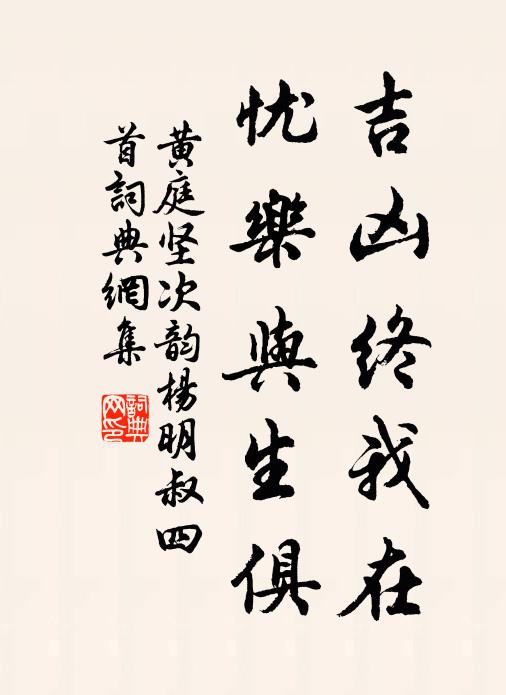 吉凶终我在
忧樂與生俱
黄庭坚次韵楊明叔四
首詞典網集
詞典
网印